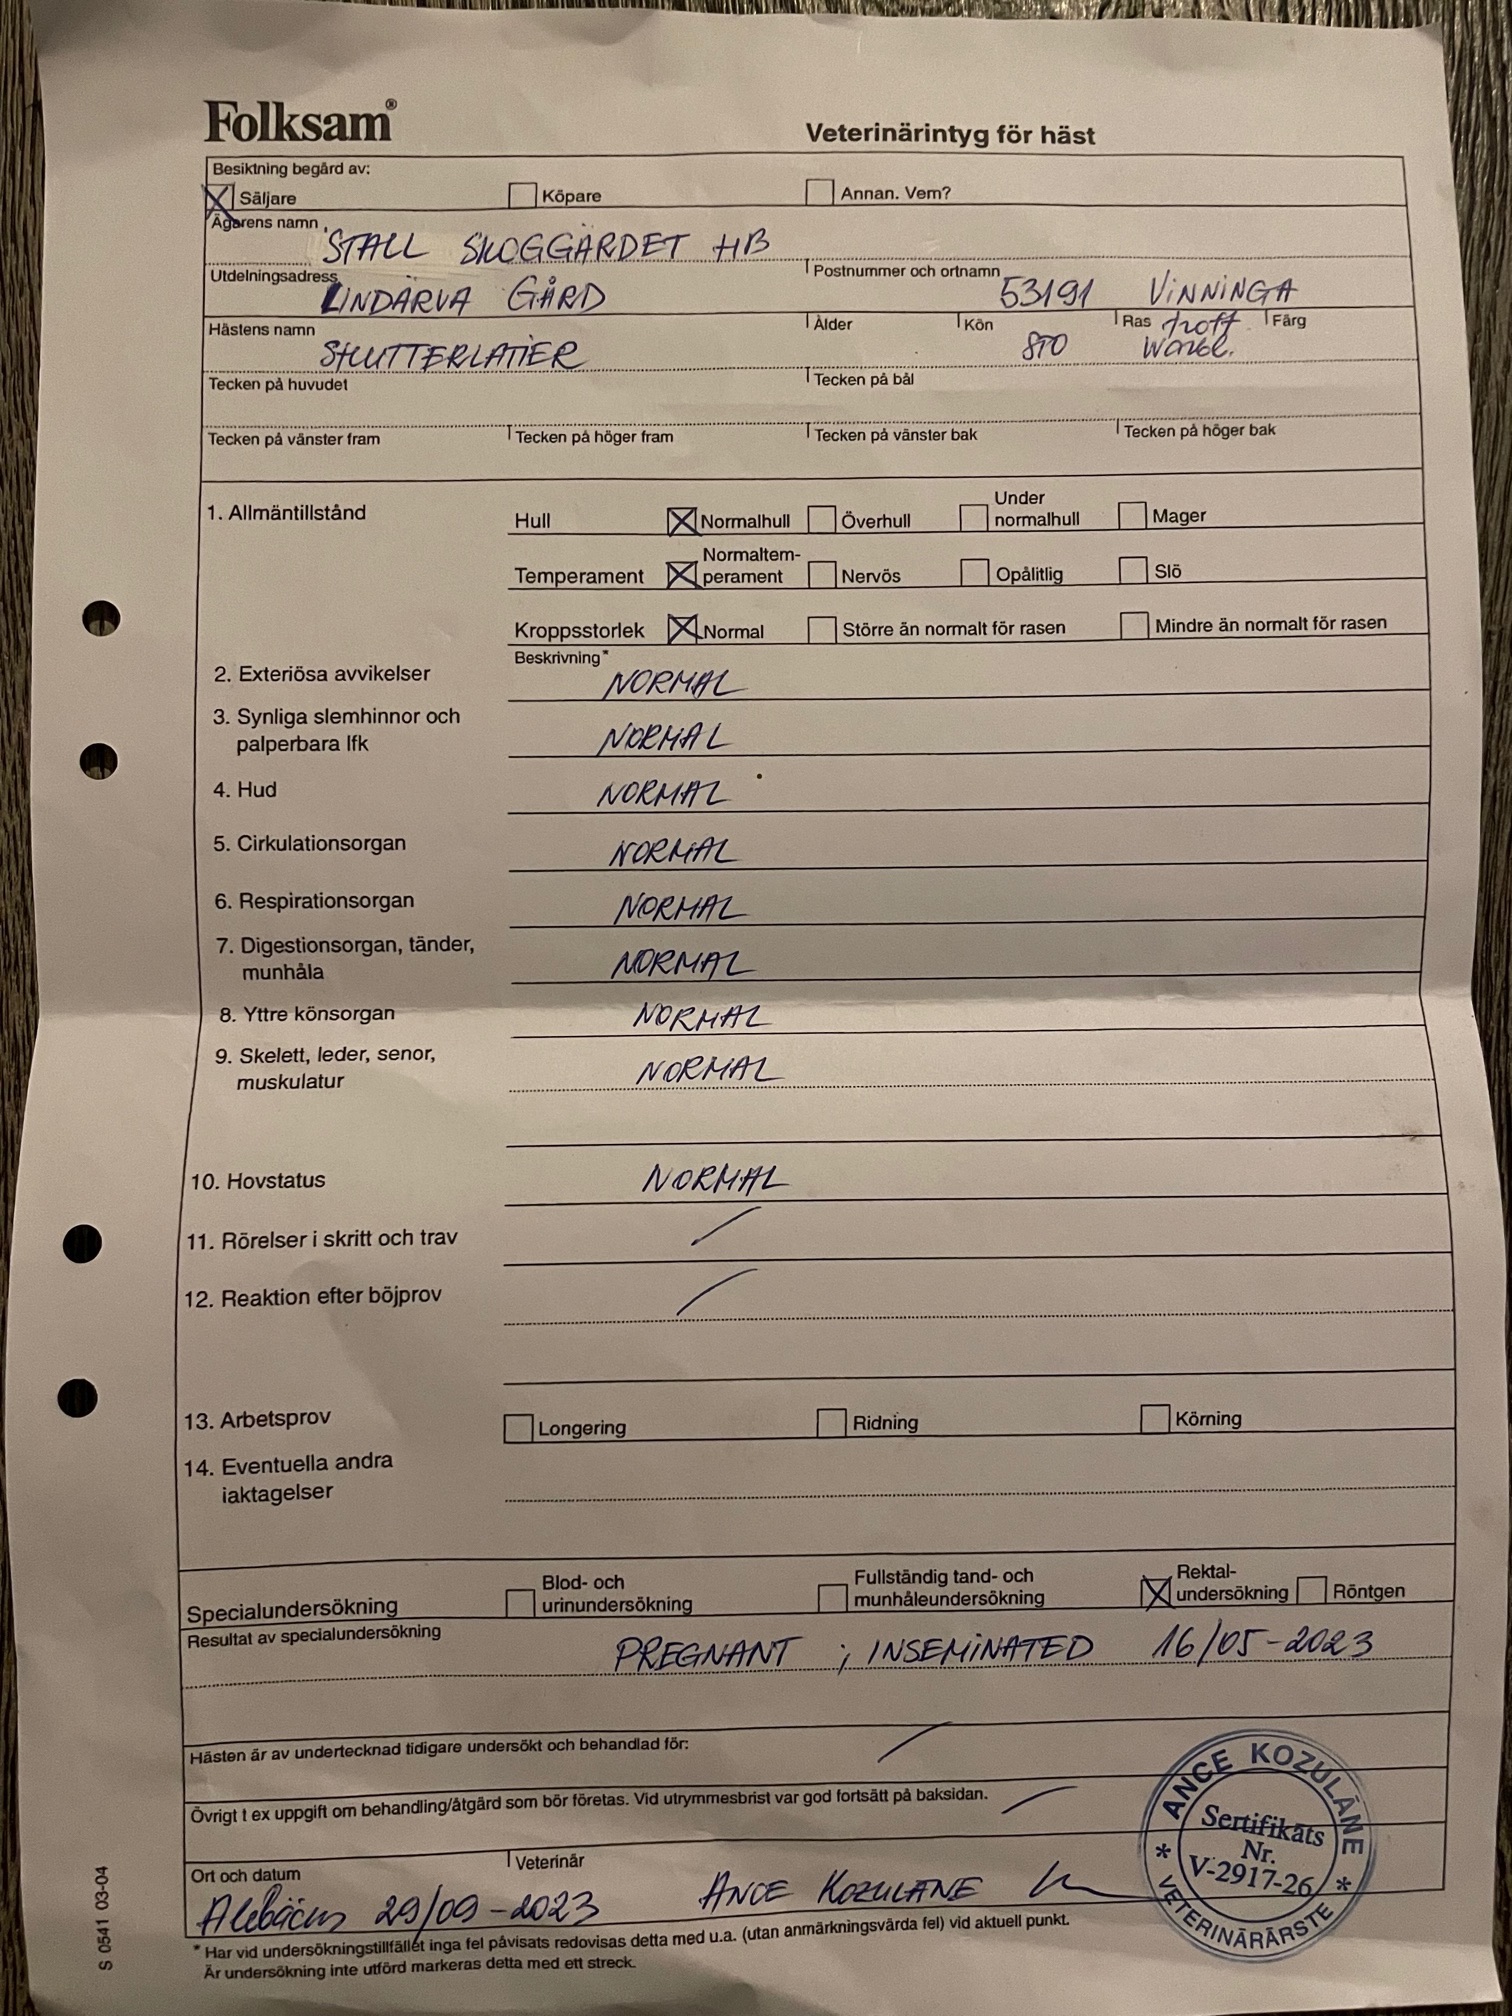 Folksam®
Veterinärintyg för häst
Besiktning begärd av:
Säljare Köpare Annan. Vem?
Ägarens namn
STALL SKOGGÄRDET HB
Utdelningsadress Postnummer och ortnamn
LINDÄRVA GÅRD 53191 VINNINGA
Hästens namn Ålder Kön Ras Färg
SHUTTERLATIER STO
Tecken på huvudet Tecken på bål
Tecken på vänster fram Tecken på höger fram Tecken på vänster bak Tecken på höger bak
1. Allmäntillstånd
Hull Normalhull Överhull Under normalhull Mager
Temperament Normaltem-
perament Nervös Opålitlig Slö
Kroppsstorlek Normal Större än normalt för rasen Mindre än normalt för rasen
Beskrivning*
2. Exteriösa avvikelser NORMAL
3. Synliga slemhinnor och
palperbara lfk NORMAL
4. Hud NORMAL
5. Cirkulationsorgan NORMAL
6. Respirationsorgan NORMAL
7. Digestionsorgan, tänder,
munhåla NORMAL
8. Yttre könsorgan NORMAL
9. Skelett, leder, senor,
muskulatur NORMAL
10. Hovstatus NORMAL
11. Rörelser i skritt och trav
12. Reaktion efter böjprov
13. Arbetsprov Longering Ridning Körning
14. Eventuella andra
iaktagelser
Specialundersökning
Blod- och
urinundersökning
Fullständig tand- och
munhåleundersökning
Rektal-
undersökning
Röntgen
Resultat av specialundersökning
PREGNANT ; INSEMINATED 16/05-2023
Hästen är av undertecknad tidigare undersökt och behandlad för:
Övrigt t ex uppgift om behandling/åtgärd som bör företas. Vid utrymmesbrist var god fortsätt på baksidan.
Ort och datum Veterinär
29/09-2023 ANCE KOZULANE
* Har vid undersökningstillfället inga fel påvisats redovisas detta med u.a. (utan anmärkningsvärda fel) vid aktuell punkt.
Är undersökning inte utförd markeras detta med ett streck.
ANCE KOZULĀNE
Sertifikāts
Nr.
V-2917-26
* VETERINĀRĀRSTE *
S 0541 03-04